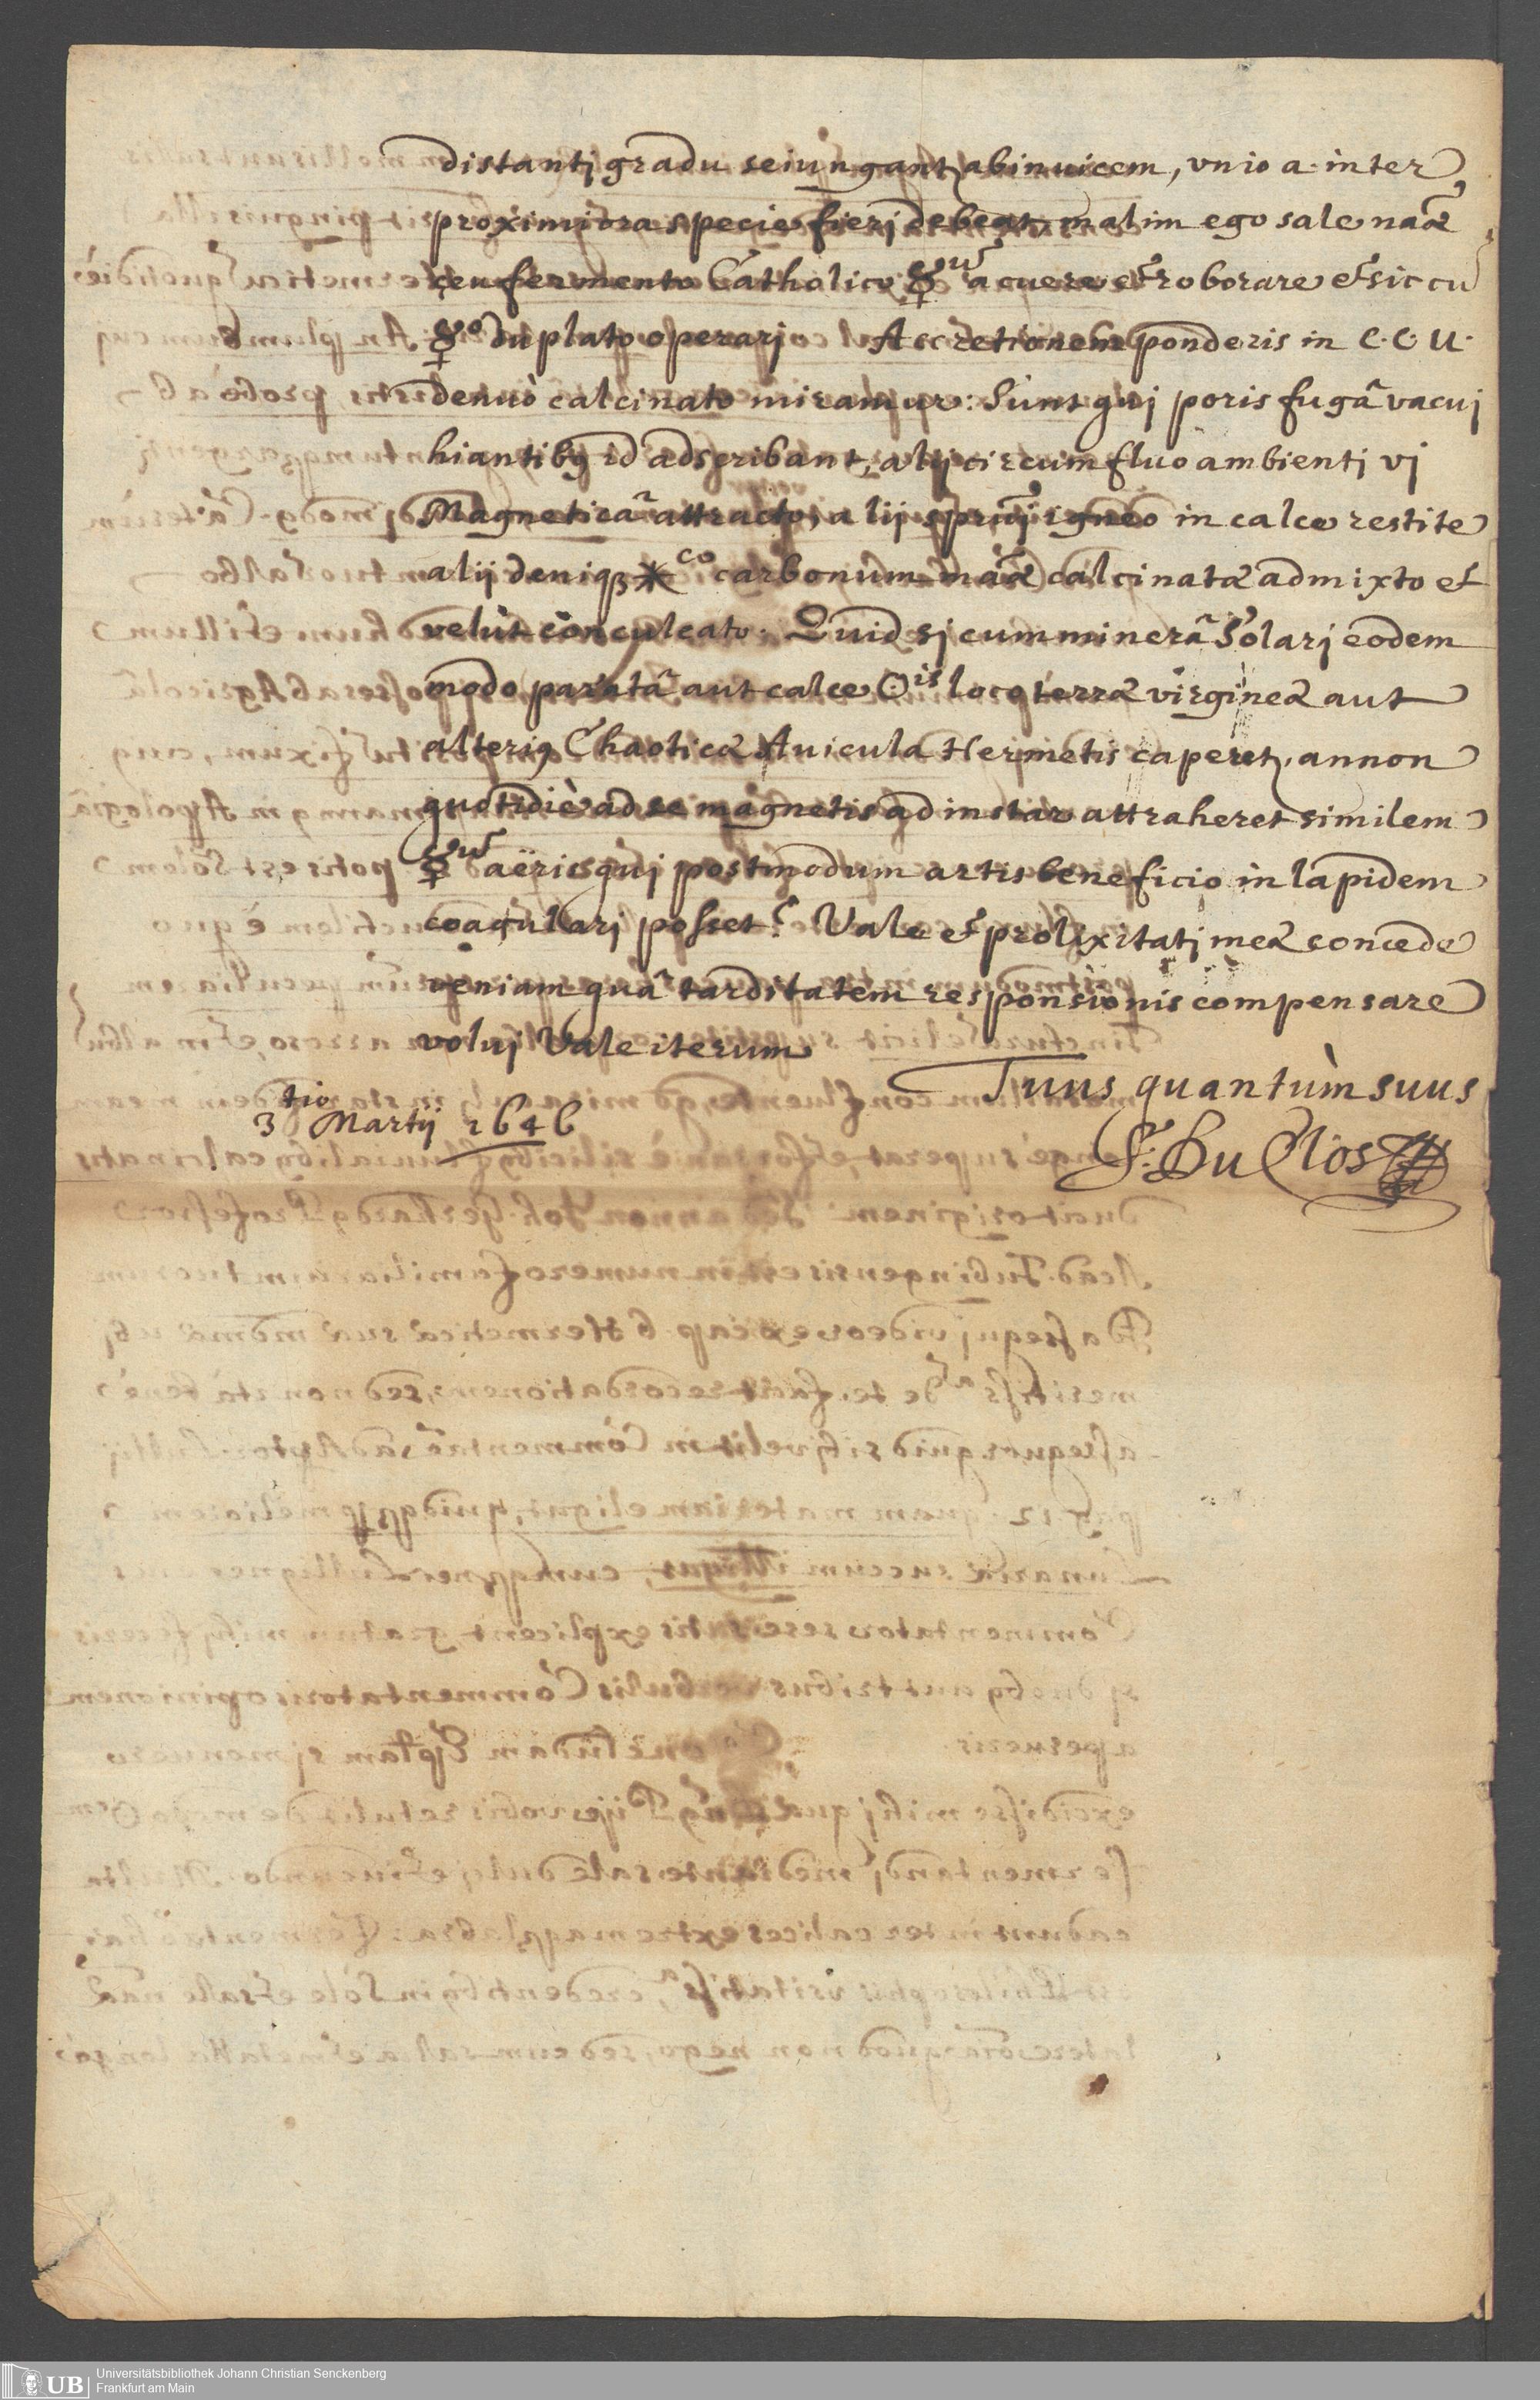 distantj gradu seiungant abinuicem, vnio a. inter
proximiora specie fierj debeat, malim ego sale naæ
ceu fermento Catholico ☿um acuere et roborare et sic cu
☿o duplato operarj Accretionem ponderis in C. C. U.
denuò calcinato miramur: Sunt quj poris fugâ vacuj
hiantibq id adscribant, alij circumfluo ambientj vj
Magneticâ attracto, alij sprûj igneo in calce restite
alij deniqȝ ✶co carbonum maæ calcinatæ admixto et
velùt conculcato. Quid sj cum minerâ Solarj eodem
modo paratâ aut calce ☉is loco terræ virgineæ aut
alterig Chaoticæ Auicula Hermetis caperet, annon
quotidiè ad se magnetis ad instar attraheret similem
☿um aëris quj postmodum artis beneficio in lapidem
coagularj posset? Vale et prolixitatj meæ concede
veniam quâ tarditatem responsionis compensare
voluj Vale iterum
Tuus quantùm suus
3tio Martij 1646
S. Du Clos
Universitätsbibliothek Johann Christian Senckenberg
Frankfurt am Main
UB